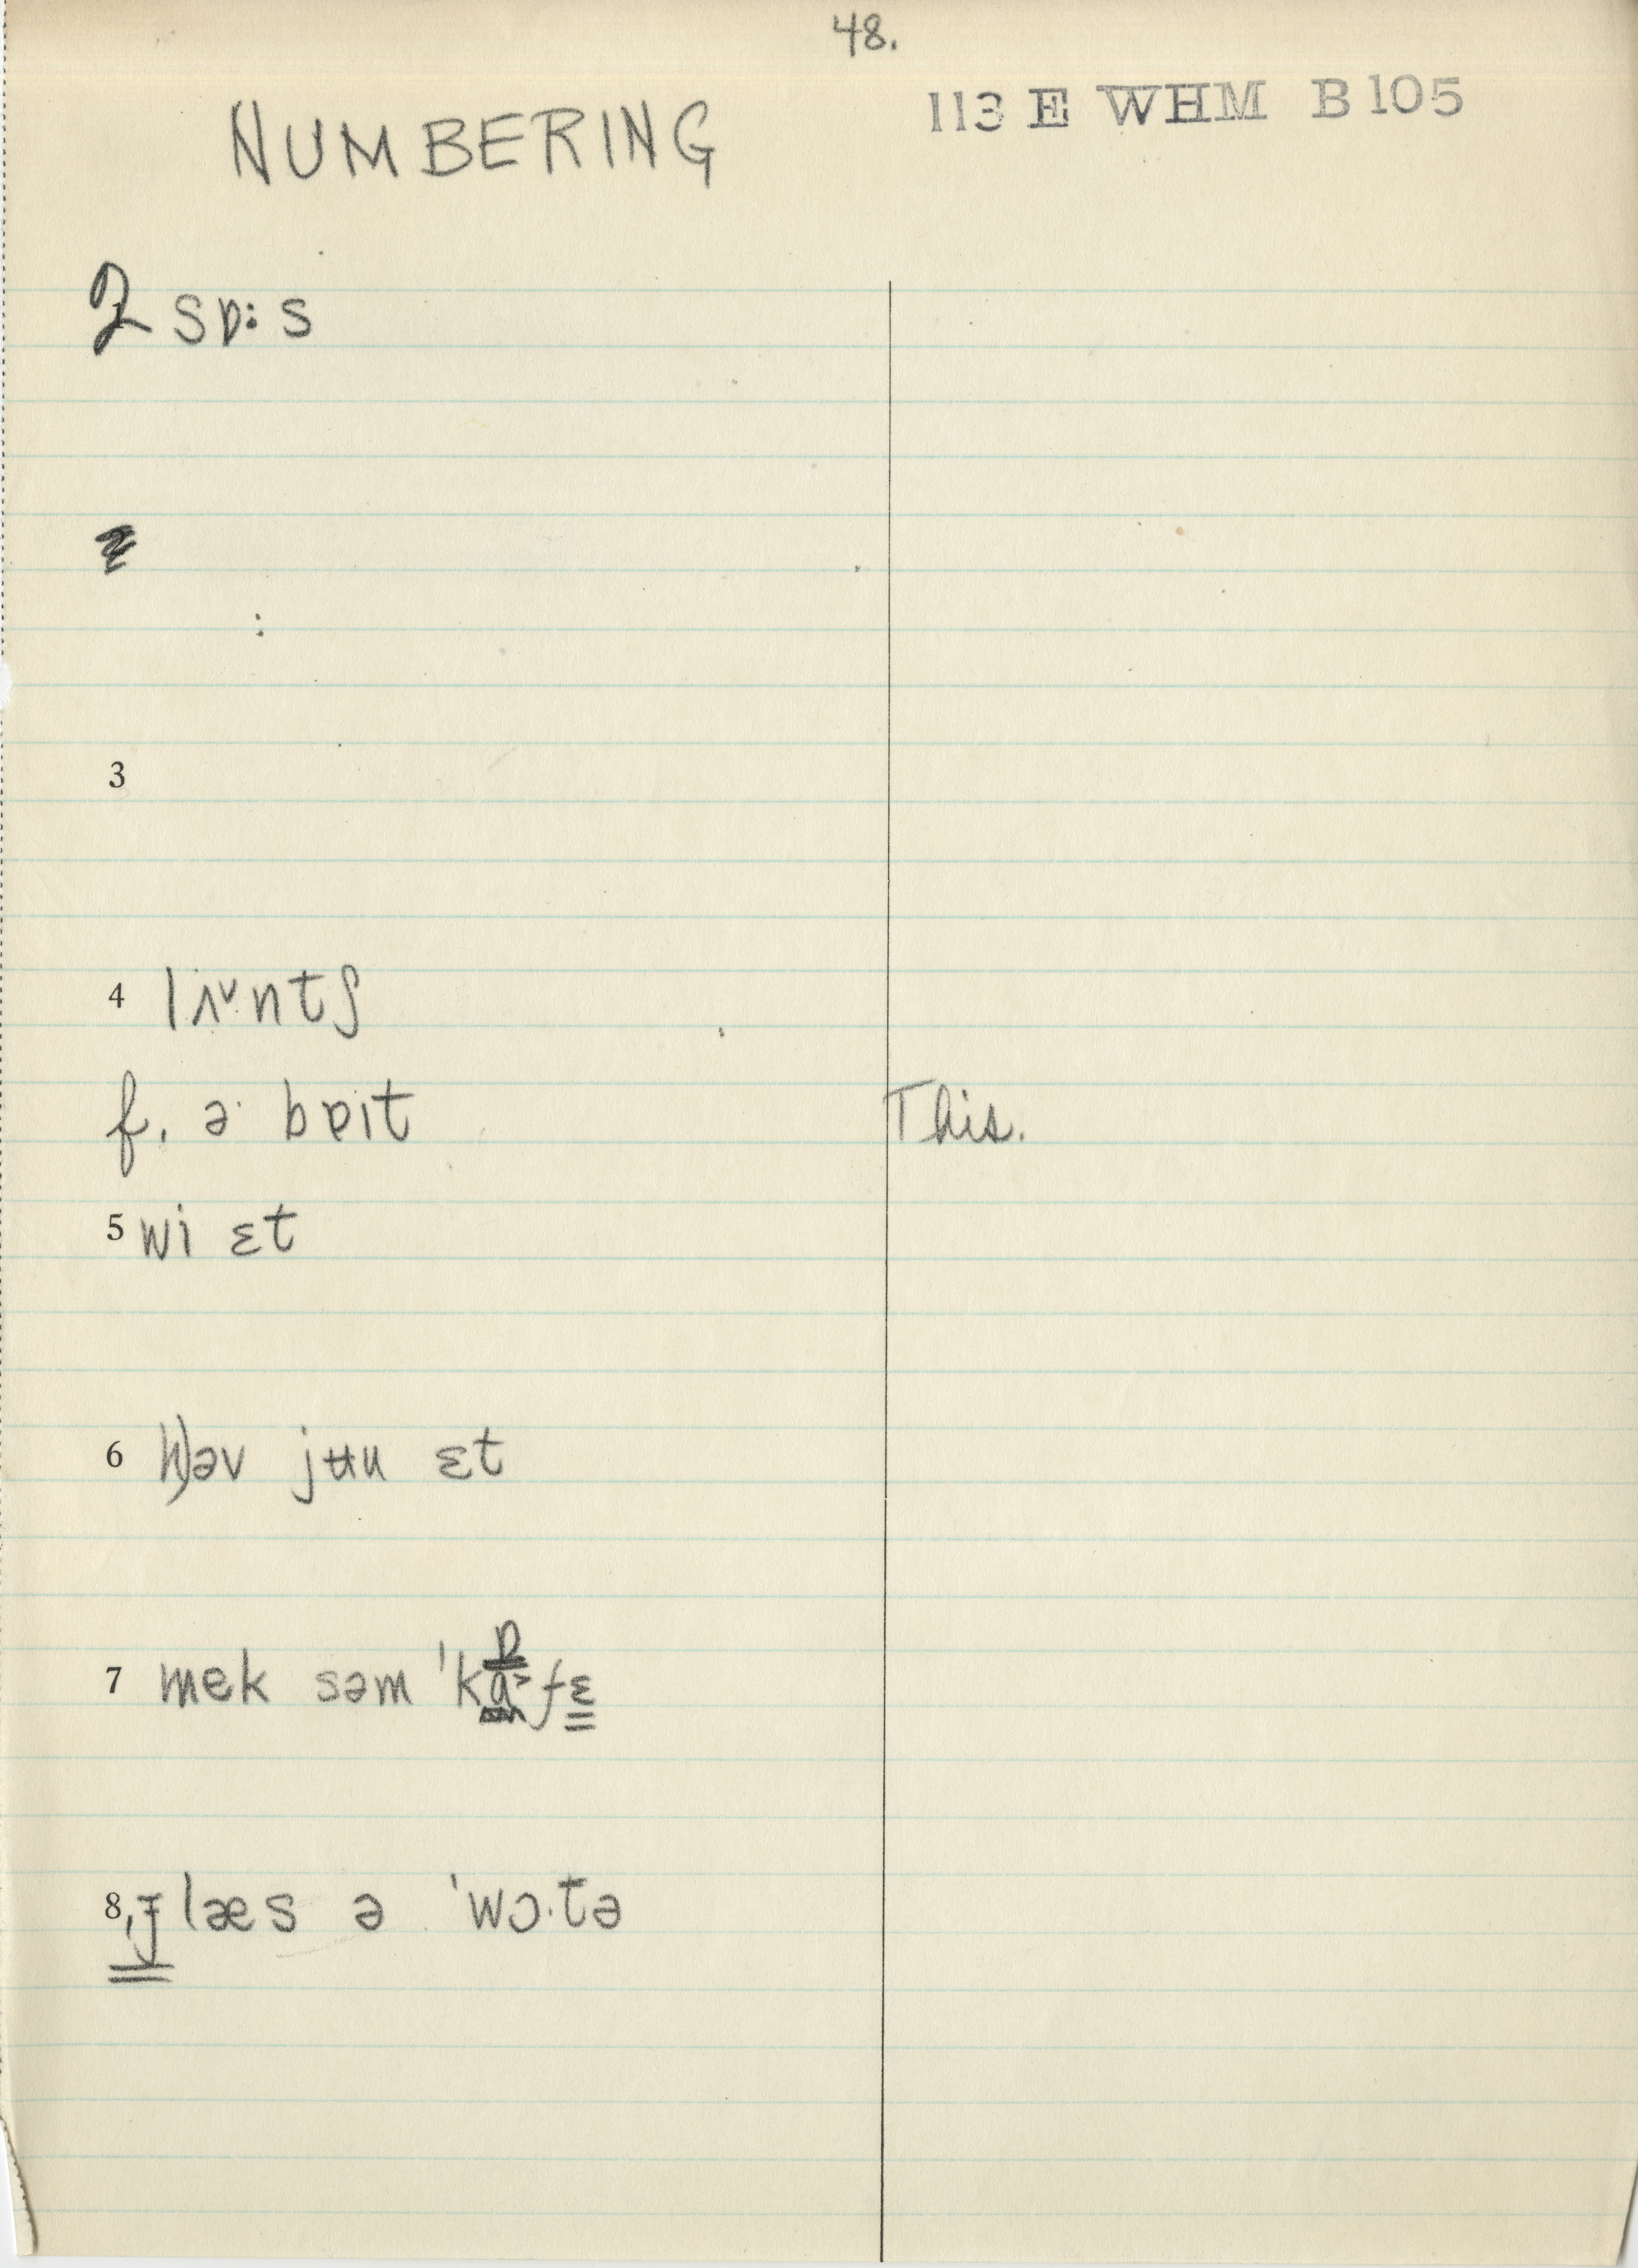 48.
NUMBERING
113 E WHM B 105
2 sɒ: s
3
4 lʌ˅ntʃ
f. ə· bɐɪt
This.
5 wi ɛt
6 həv jʉu ɛt
7 mek səm 'kɒfɛ
8, ɟlæs ə 'wɔ·tə